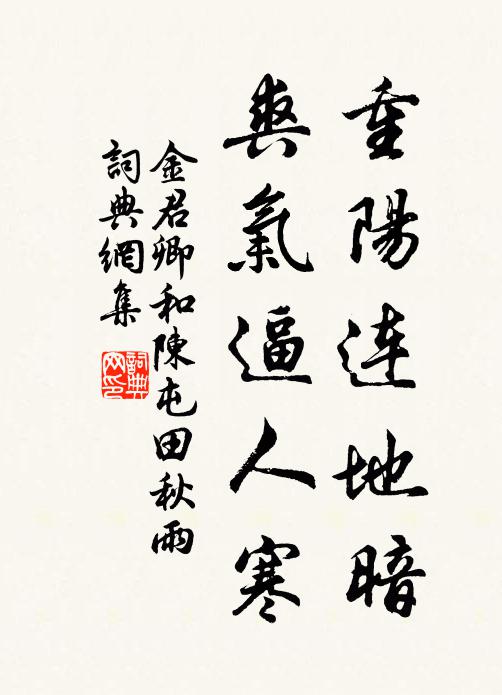 重陽連地暗
爽氣逼人寒
金君卿和陳屯田秋雨
詞典網集
詞典网印